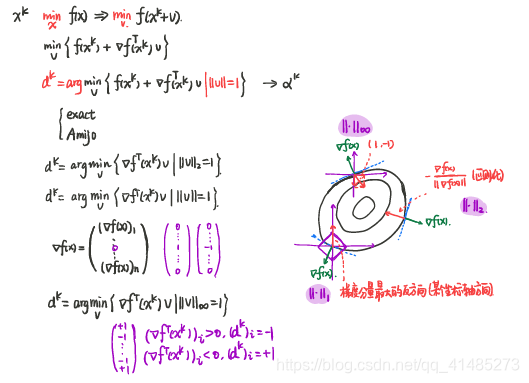 xᵏ min_x f(x) ⇒ min_v f(xᵏ+v).
min_v {f(xᵏ) + ∇fᵀ(xᵏ)v}
dᵏ = arg min_v {f(xᵏ) + ∇fᵀ(xᵏ)v | ‖v‖=1} → αᵏ
{ exact
Amijo
dᵏ = arg min_v {∇fᵀ(xᵏ)v | ‖v‖₂=1}.
dᵏ = arg min_v {∇fᵀ(xᵏ)v | ‖v‖=1}.
∇f(x) = ((∇f(x))₁ ⋮ 0 ⋮ (∇f(x))n) (0 ⋮ 1 ⋮ 0) (0 ⋮ -1 ⋮ 0)
dᵏ = arg min_v {∇fᵀ(xᵏ)v | ‖v‖∞=1}
(+1 -1 ⋮ -1 +1) (∇fᵀ(xᵏ))ᵢ>0, (dᵏ)ᵢ=-1
(∇fᵀ(xᵏ))ᵢ<0, (dᵏ)ᵢ=+1
‖·‖∞
∇f(x) (1,-1)
-∇f(x)/‖∇f(x)‖
‖·‖₂
∇f(x).
∇f(x)
‖·‖₁ 梯度分量最大的反方向(某个坐标轴方向)
https://blog.csdn.net/qq_41485273